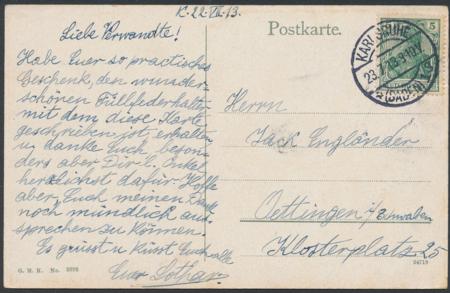 K. 22.VII.13.
Liebe Verwandte!
Habe Euer so practisches
Geschenk, den wunder-
schönen Füllfederhalter
mit dem diese Karte
geschrieben ist, erhalten
u. danke Euch beson-
ders aber Dir l. Onkel
herzlichst dafür. Hoffe
aber Euch meinen Dank
noch mündlich aus-
sprechen zu können.
Es grüsst u küsst Euch alle
Euer Lothar.
G. M. K. No.
Postkarte.
5
KARLSRUHE
23.7.13
(BADEN)
Herrn
Jack Engländer
Oettingen i/Schwaben
Klosterplatz 25